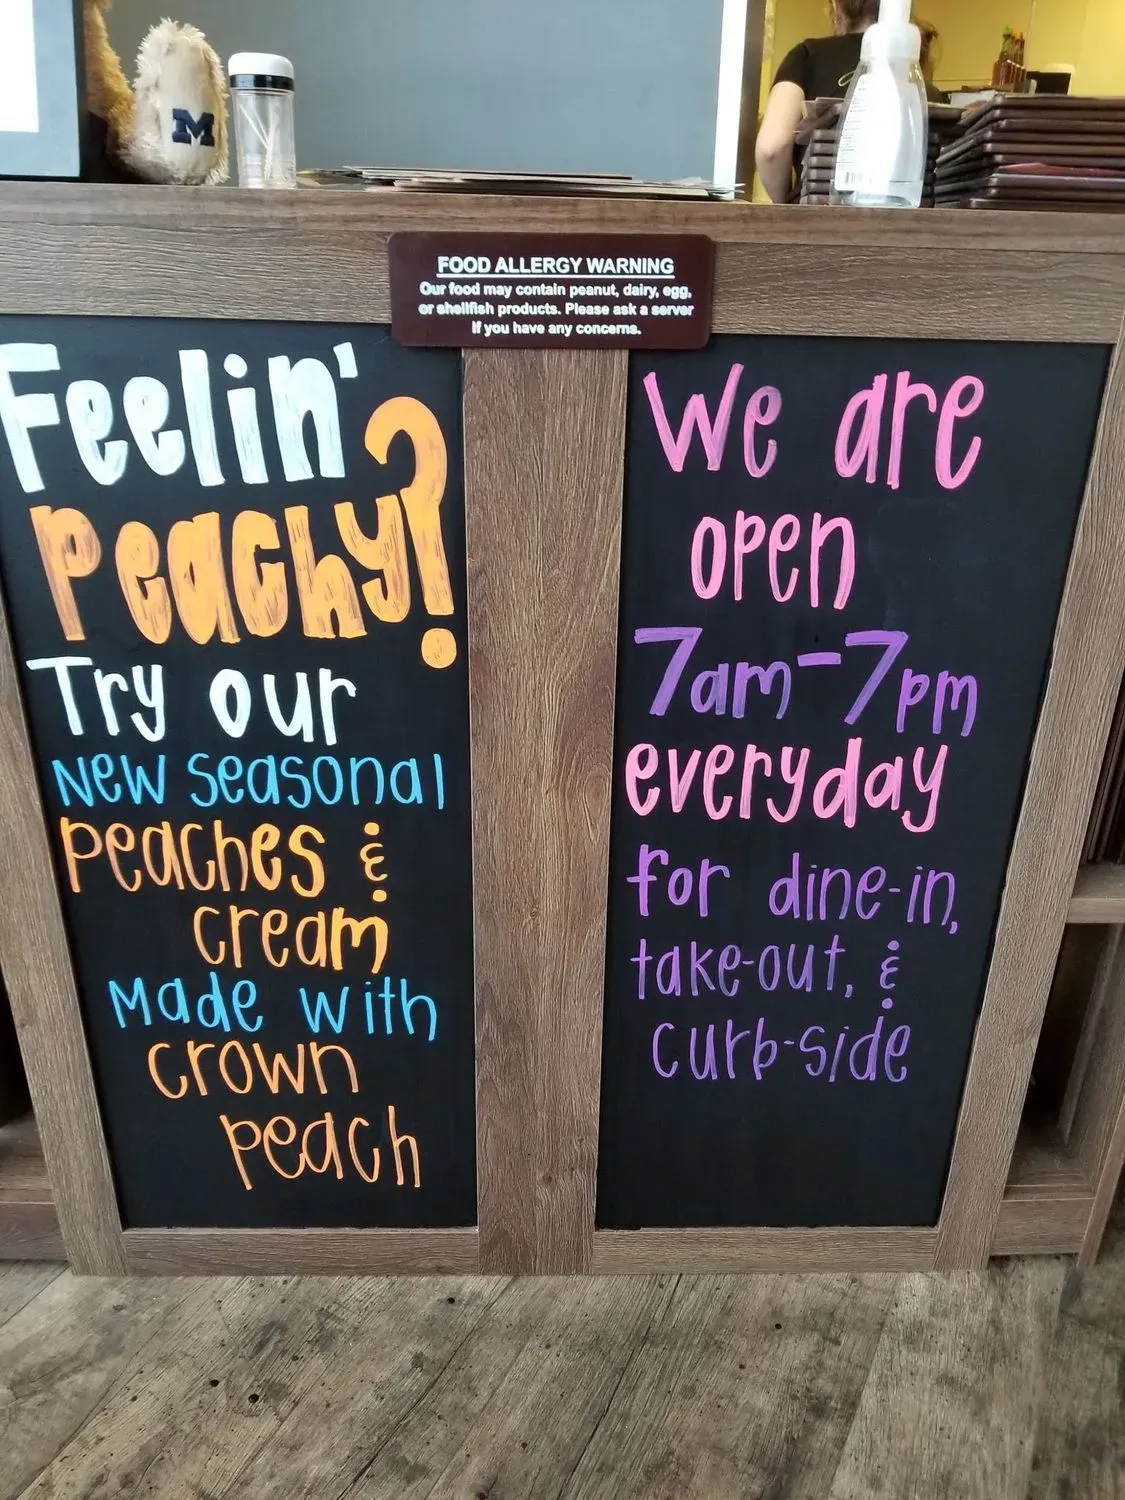 M
FOOD ALLERGY WARNING
Our food may contain peanut, dairy, egg,
or shellfish products. Please ask a server
if you have any concerns.
Feelin'
Peachy?
Try our
New seasonal
peaches &
cream
Made with
crown
peach
We are
open
7am-7pm
everyday
for dine-in,
take-out, &
curb-side